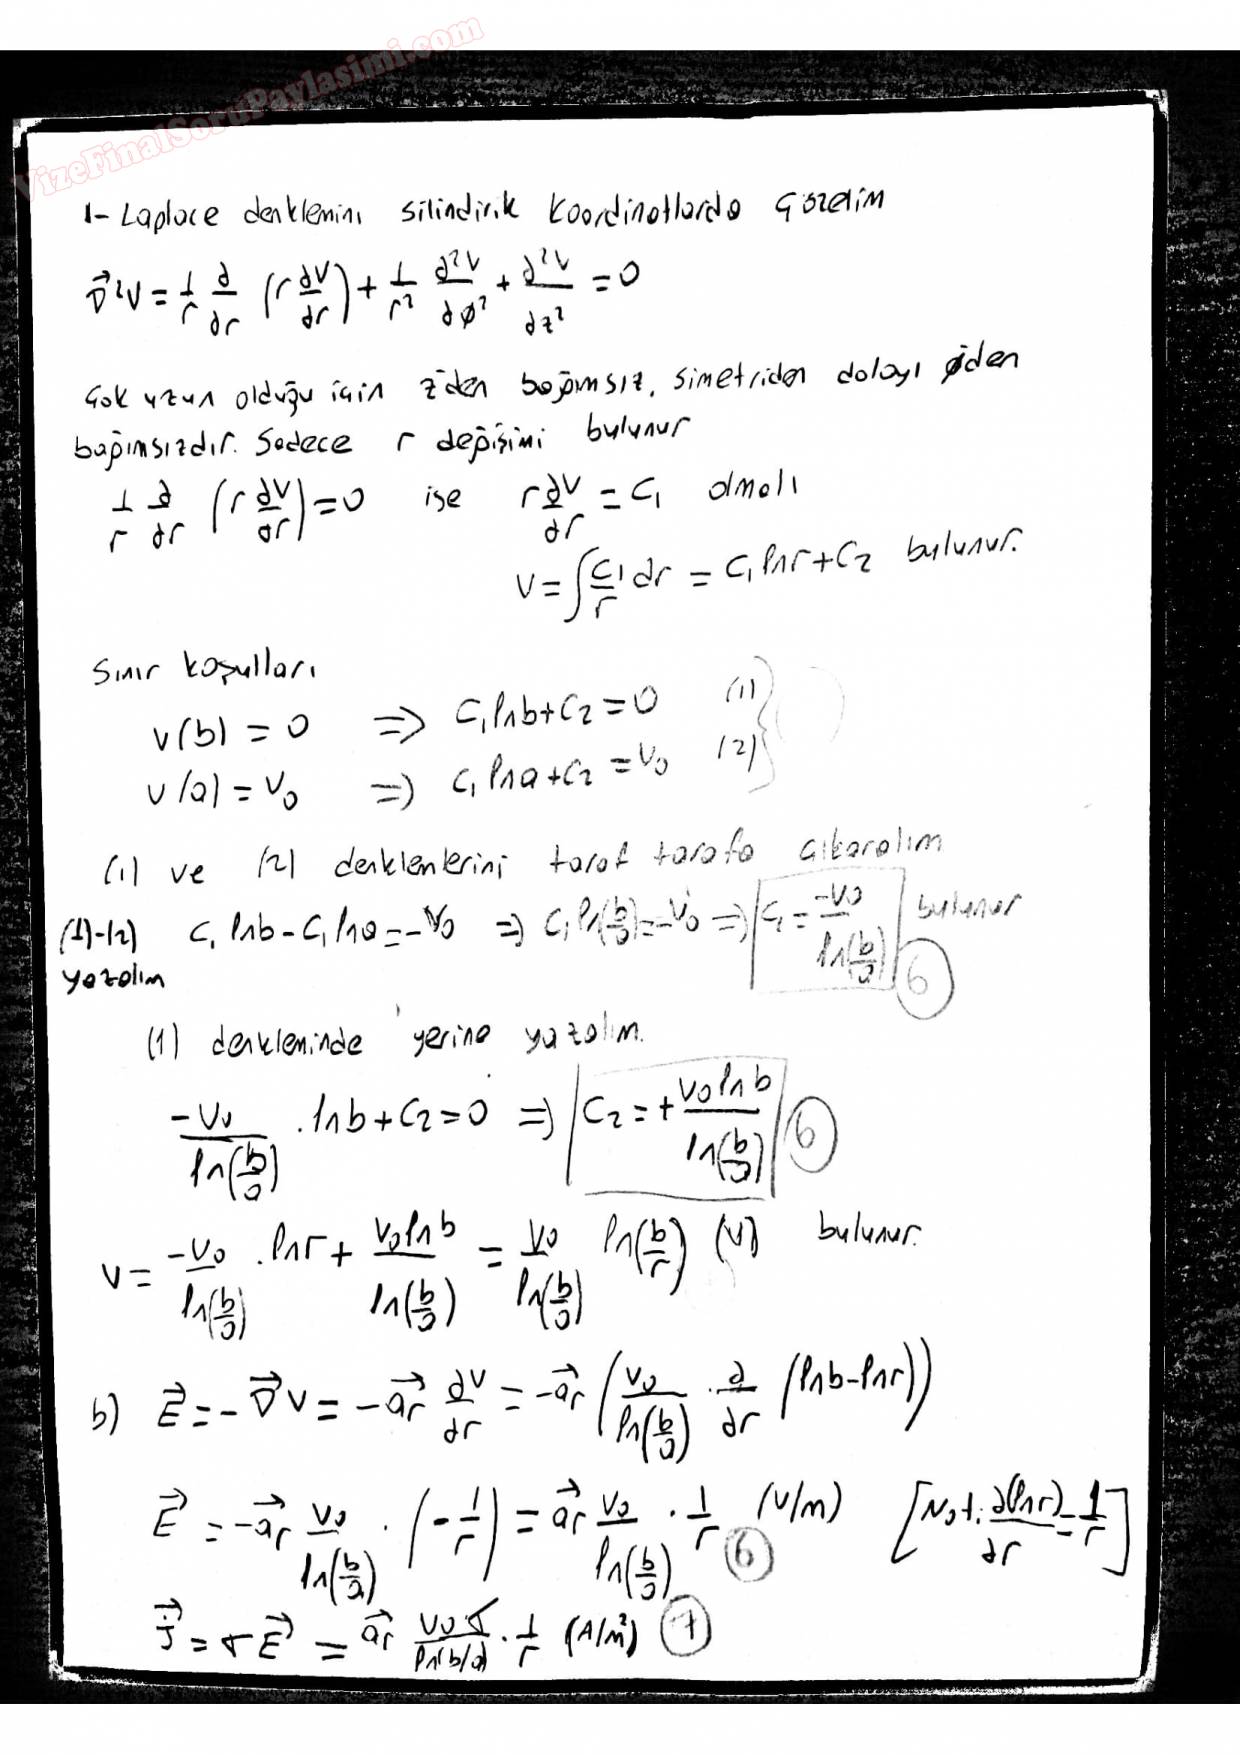 VizeFinalSoruPaylasimi.com
1- Laplace denklemini silindirik koordinatlarda çözelim
∇⃗²V = 1/r ∂/∂r (r ∂V/∂r) + 1/r² ∂²V/∂φ² + ∂²V/∂z² = 0
Çok uzun olduğu için z'den bağımsız, simetriden dolayı φ'den
bağımsızdır. Sadece r değişimi bulunur
1/r ∂/∂r (r ∂V/∂r) = 0 ise r ∂V/∂r = C₁ olmalı
V = ∫ C₁/r dr = C₁ ln r + C₂ bulunur.
Sınır koşulları
V(b) = 0 ⇒ C₁ ln b + C₂ = 0 (1)
V(a) = V₀ ⇒ C₁ ln a + C₂ = V₀ (2)
(1) ve (2) denklemlerini taraf tarafa çıkaralım
(1)-(2) C₁ ln b - C₁ ln a = -V₀ ⇒ C₁ ln(b/a) = -V₀ ⇒ C₁ = -V₀/ln(b/a) bulunur 6
yazalım
(1) denkleminde yerine yazalım.
-V₀/ln(b/a) . ln b + C₂ = 0 ⇒ C₂ = + V₀ ln b/ln(b/a) 6
V = -V₀/ln(b/a) . ln r + V₀ ln b/ln(b/a) = V₀/ln(b/a) ln(b/r) (V) bulunur.
b) E⃗ = -∇⃗V = -a⃗r ∂V/∂r = -a⃗r (V₀/ln(b/a) . ∂/∂r (ln b - ln r))
E⃗ = -a⃗r V₀/ln(b/a) . (-1/r) = a⃗r V₀/ln(b/a) . 1/r (V/m) 6 [Not: ∂(ln r)/∂r = 1/r]
J⃗ = σE⃗ = a⃗r V₀σ/ln(b/a) . 1/r (A/m²) 7